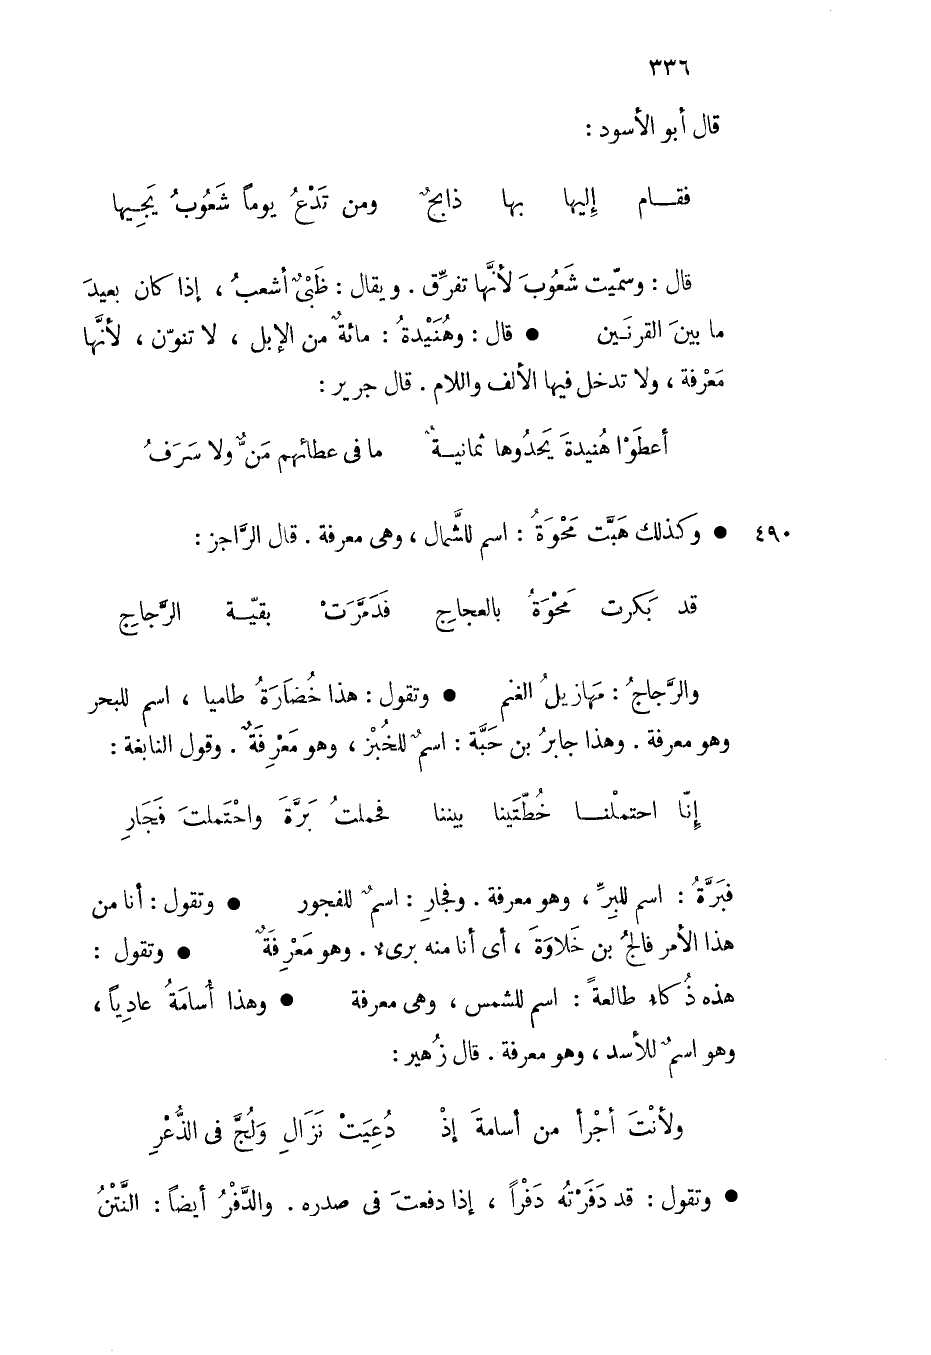 ٣٣٦
قال أبو الأسود :
فقــام إليها بها ذابحٌ ومن تَدْعُ يوماً شَعُوبُ يَجِيها
قال : وسمّيت شَعُوبَ لأنَّها تفرِّق . ويقال : ظَبْىٌ أشعبُ ، إذا كان بعيدَ
ما بينَ القرنَين ● قال : وهُنَيْدةُ : مائةٌ من الإبل ، لا تنوّن ، لأنَّها
مَعْرفة ، ولا تدخل فيها الألف واللام . قال جرير :
أعطَوْا هُنيدةَ يَحدُوها ثمانيــةٌ ما فى عطائهم مَنٌّ ولا سَرَفُ
٤٩٠ ● وكذلك هَبَّت مَحْوَةُ : اسم للشَّمال ، وهى معرفة . قال الرَّاجز :
قد بَكرت مَحْوَةُ بالعجاجِ فَدَمَّرَتْ بقيّــة الرَّجاجِ
والرَّجاجُ : مَهازيلُ الغنم ● وتقول : هذا خُضَارَةُ طاميا ، اسم للبحر
وهو معرفة . وهذا جابرُ بن حَبَّة : اسمٌ للخُبْز ، وهو مَعْرِفَةٌ . وقول النابغة :
إنّا احتملْنــا خُطّتَينا بيننا فحملتُ بَرَّةَ واحْتَملتَ فَجَارِ
فبَرَّةُ : اسم للبِرِّ ، وهو معرفة . وفجارِ : اسمٌ للفجور ● وتقول : أنا من
هذا الأمر فالجُ بن خَلاوَةَ ، أى أنا منه برىء . وهو مَعْرِفَةٌ ● وتقول :
هذه ذُكاء طالعةً : اسم للشمس ، وهى معرفة ● وهذا أُسامَةُ عادِياً ،
وهو اسمٌ للأسد ، وهو معرفة . قال زُهير :
ولأنْتَ أجْرأ من أسامةَ إذْ دُعِيَتْ نَزَالِ وَلُجَّ فى الذُّعْرِ
● وتقول : قد دَفَرْتُه دَفْراً ، إذا دفعتَ فى صدره . والدَّفْرُ أيضاً : النَّتْنُ